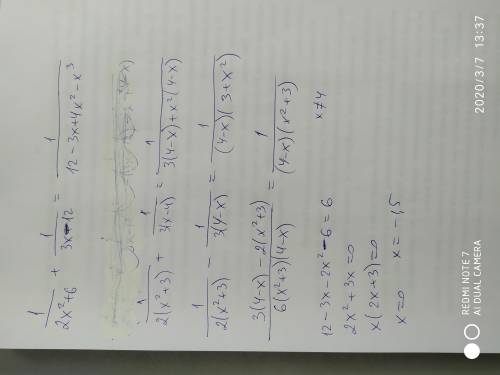 1/(2x²+6) + 1/(3x-12) = 1/(12-3x+4x²-x³)
1/(2(x²+3)) + 1/(3(x-4)) = 1/(3(4-x)+x²(4-x))
1/(2(x²+3)) - 1/(3(4-x)) = 1/((4-x)(3+x²))
(3(4-x)-2(x²+3))/(6(x²+3)(4-x)) = 1/((4-x)(x²+3))
12-3x-2x²-6=6 x≠4
2x²+3x=0
x(2x+3)=0
x=0 x=-1,5
REDMI NOTE 7
AI DUAL CAMERA
2020/3/7 13:37